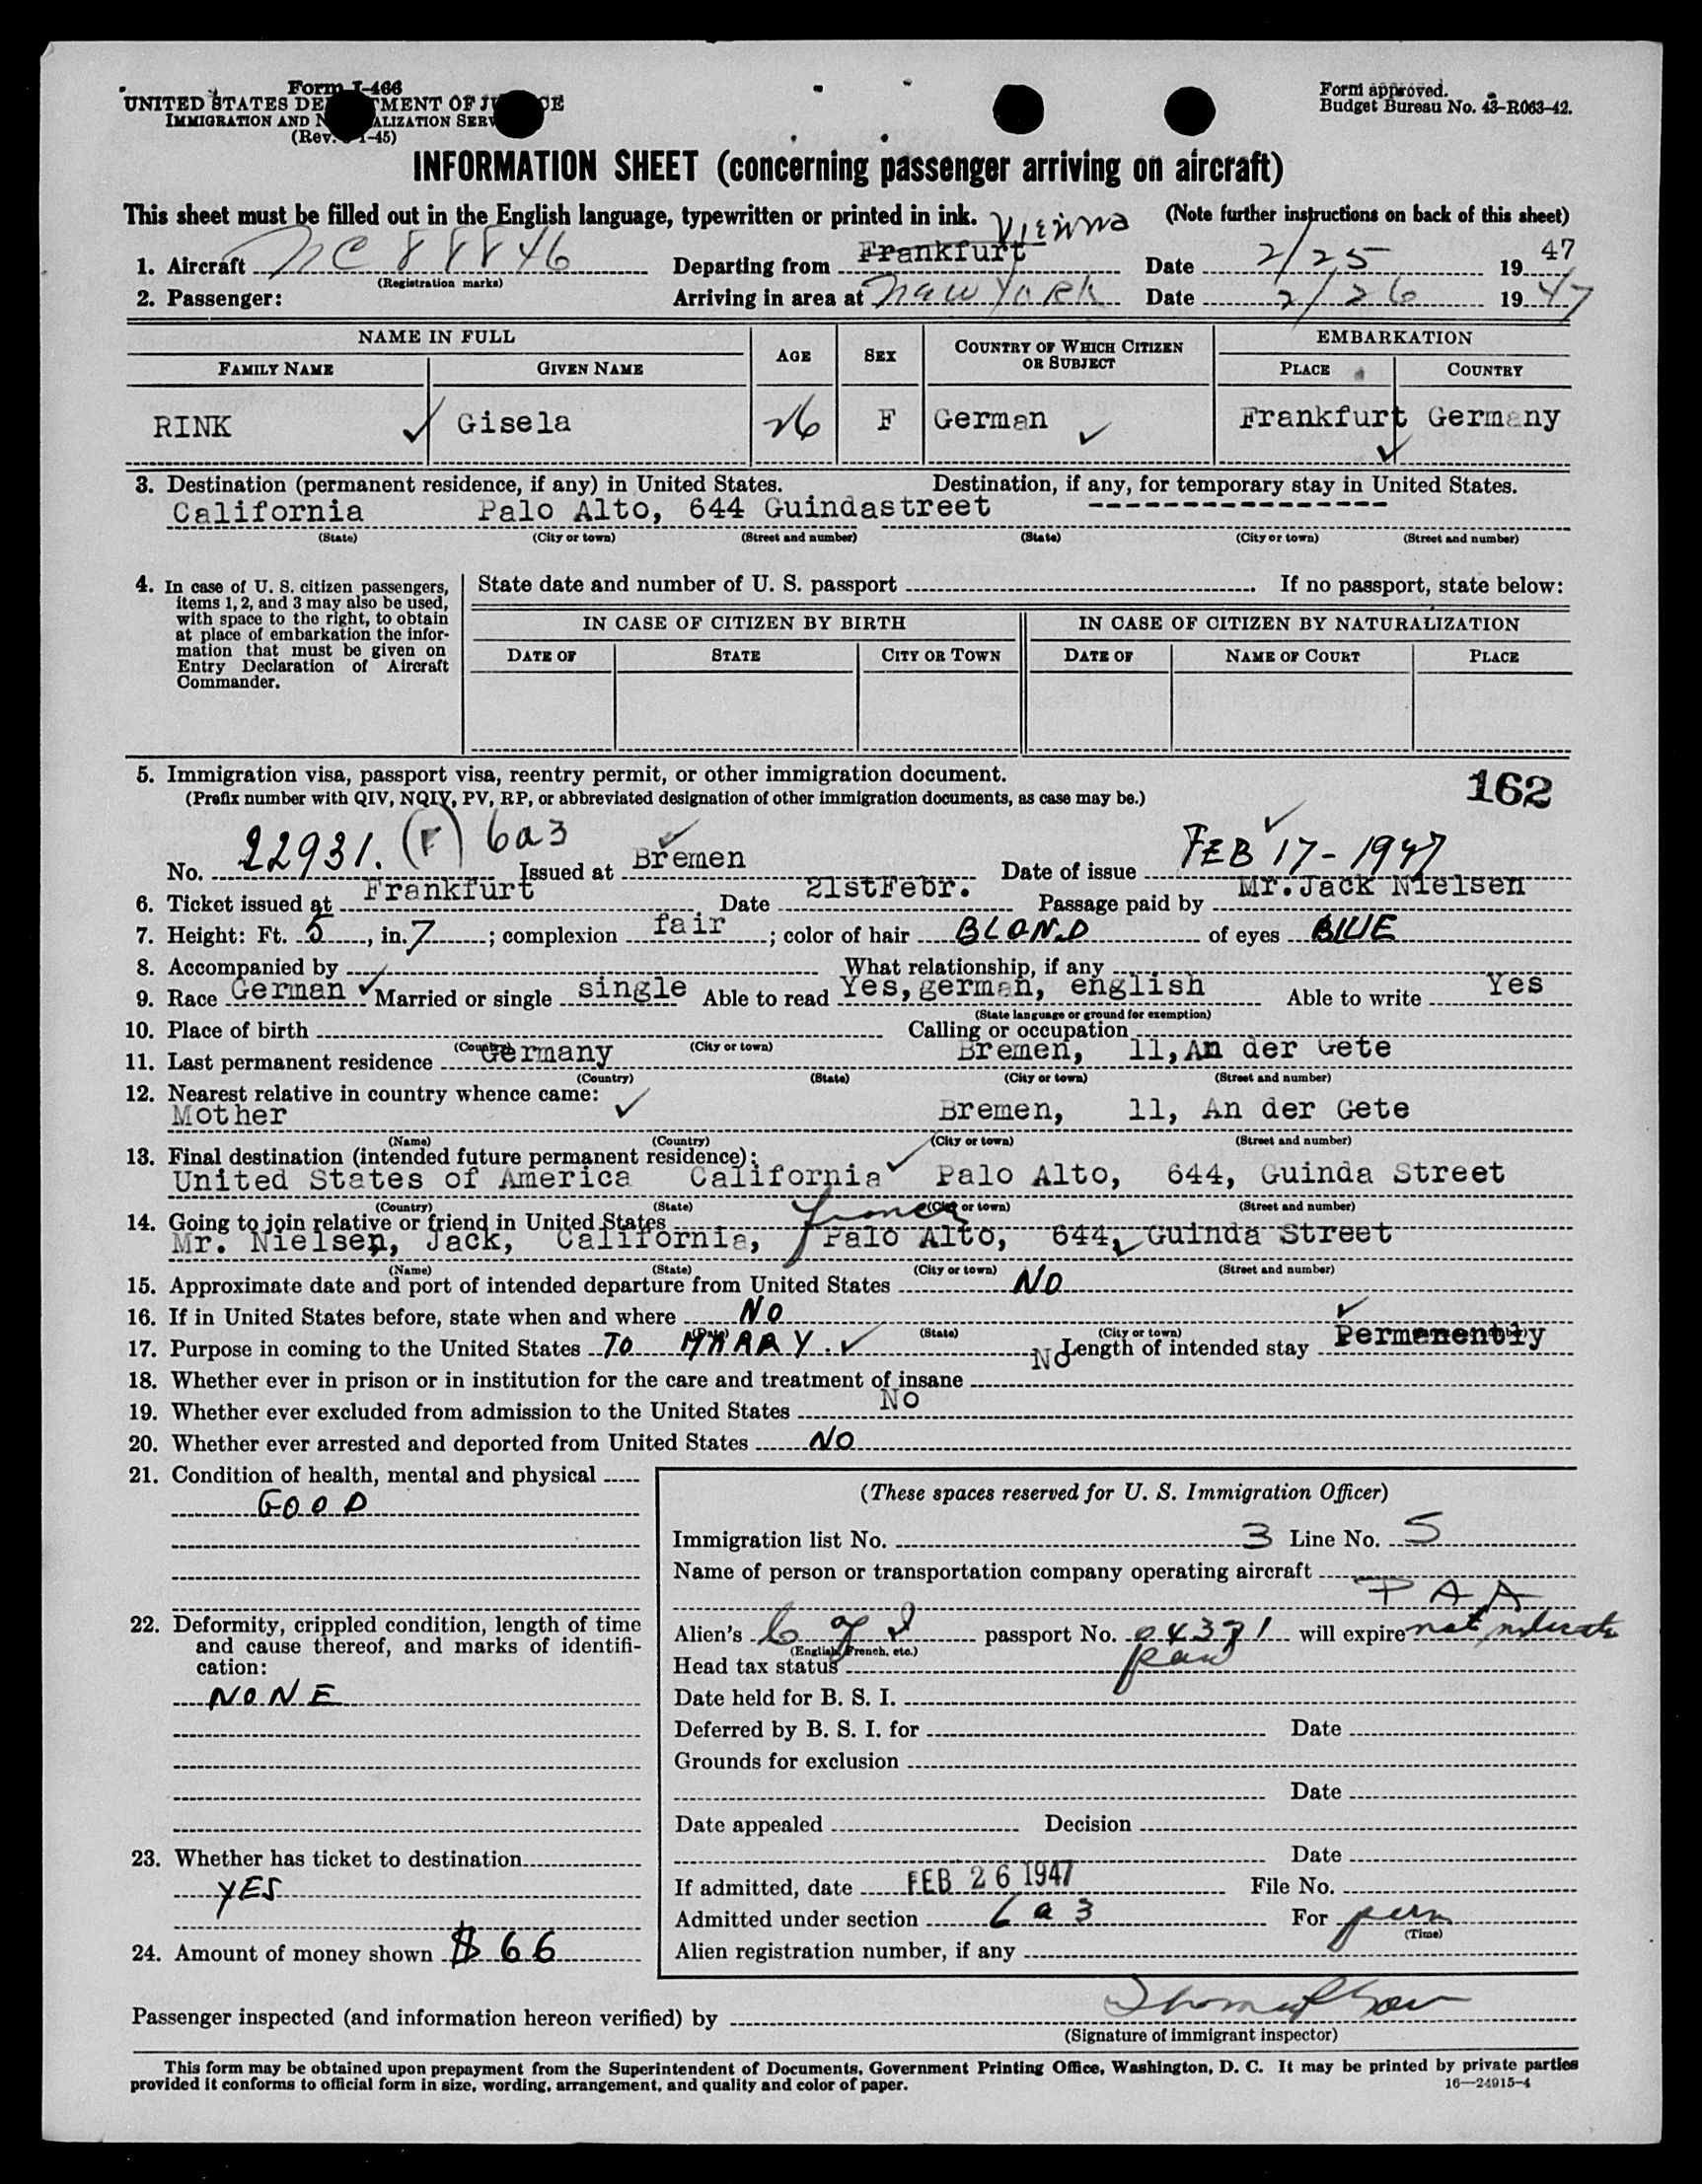 Form I-466
UNITED STATES DE TMENT OF J CE
IMMIGRATION AND N ALIZATION SERV
(Rev. 1-45)
Form approved.
Budget Bureau No. 43-R063-42.
INFORMATION SHEET (concerning passenger arriving on aircraft)
This sheet must be filled out in the English language, typewritten or printed in ink. (Note further instructions on back of this sheet)
Vienna
1. Aircraft NC 88846 Departing from Frankfurt Date 2/25 1947
(Registration marks)
2. Passenger: Arriving in area at New York Date 2/26 1947
NAME IN FULL
FAMILY NAME GIVEN NAME AGE SEX COUNTRY OF WHICH CITIZEN OR SUBJECT EMBARKATION
PLACE COUNTRY
RINK Gisela 26 F German Frankfurt Germany
3. Destination (permanent residence, if any) in United States. Destination, if any, for temporary stay in United States.
California Palo Alto, 644 Guindastreet ----------------
(State) (City or town) (Street and number) (State) (City or town) (Street and number)
4. In case of U. S. citizen passengers, items 1, 2, and 3 may also be used, with space to the right, to obtain at place of embarkation the information that must be given on Entry Declaration of Aircraft Commander.
State date and number of U. S. passport If no passport, state below:
IN CASE OF CITIZEN BY BIRTH IN CASE OF CITIZEN BY NATURALIZATION
DATE OF STATE CITY OR TOWN DATE OF NAME OF COURT PLACE
5. Immigration visa, passport visa, reentry permit, or other immigration document. 162
(Prefix number with QIV, NQIV, PV, RP, or abbreviated designation of other immigration documents, as case may be.)
No. 22931. (F) 6a3 Issued at Bremen Date of issue FEB 17-1947
6. Ticket issued at Frankfurt Date 21stFebr. Passage paid by Mr.Jack Nielsen
7. Height: Ft. 5, in. 7; complexion fair; color of hair BLOND of eyes BLUE
8. Accompanied by What relationship, if any
9. Race German Married or single single Able to read Yes, german, english Able to write Yes
(State language or ground for exemption)
10. Place of birth Calling or occupation
(Country) (City or town)
11. Last permanent residence Germany Bremen, 11, An der Gete
(Country) (State) (City or town) (Street and number)
12. Nearest relative in country whence came:
Mother Bremen, 11, An der Gete
(Name) (Country) (City or town) (Street and number)
13. Final destination (intended future permanent residence):
United States of America California Palo Alto, 644, Guinda Street
(Country) (State) (City or town) (Street and number)
14. Going to join relative or friend in United States
Mr. Nielsen, Jack, California, Palo Alto, 644, Guinda Street
(Name) (State) (City or town) (Street and number)
15. Approximate date and port of intended departure from United States NO
16. If in United States before, state when and where NO
(Date) (State) (City or town)
17. Purpose in coming to the United States TO MARRY. Length of intended stay Permanently
18. Whether ever in prison or in institution for the care and treatment of insane NO
19. Whether ever excluded from admission to the United States NO
20. Whether ever arrested and deported from United States NO
21. Condition of health, mental and physical
GOOD
(These spaces reserved for U. S. Immigration Officer)
Immigration list No. 3 Line No. 5
Name of person or transportation company operating aircraft
PAA
22. Deformity, crippled condition, length of time and cause thereof, and marks of identification:
NONE
Alien's passport No. will expire not
(English, French, etc.)
Head tax status
Date held for B. S. I.
Deferred by B. S. I. for Date
Grounds for exclusion
Date
Date appealed Decision
23. Whether has ticket to destination
YES
Date
If admitted, date FEB 26 1947 File No.
Admitted under section 6a3 For perm
(Time)
24. Amount of money shown $66
Alien registration number, if any
Passenger inspected (and information hereon verified) by
(Signature of immigrant inspector)
This form may be obtained upon prepayment from the Superintendent of Documents, Government Printing Office, Washington, D. C. It may be printed by private parties
provided it conforms to official form in size, wording, arrangement, and quality and color of paper.
16—24915-4